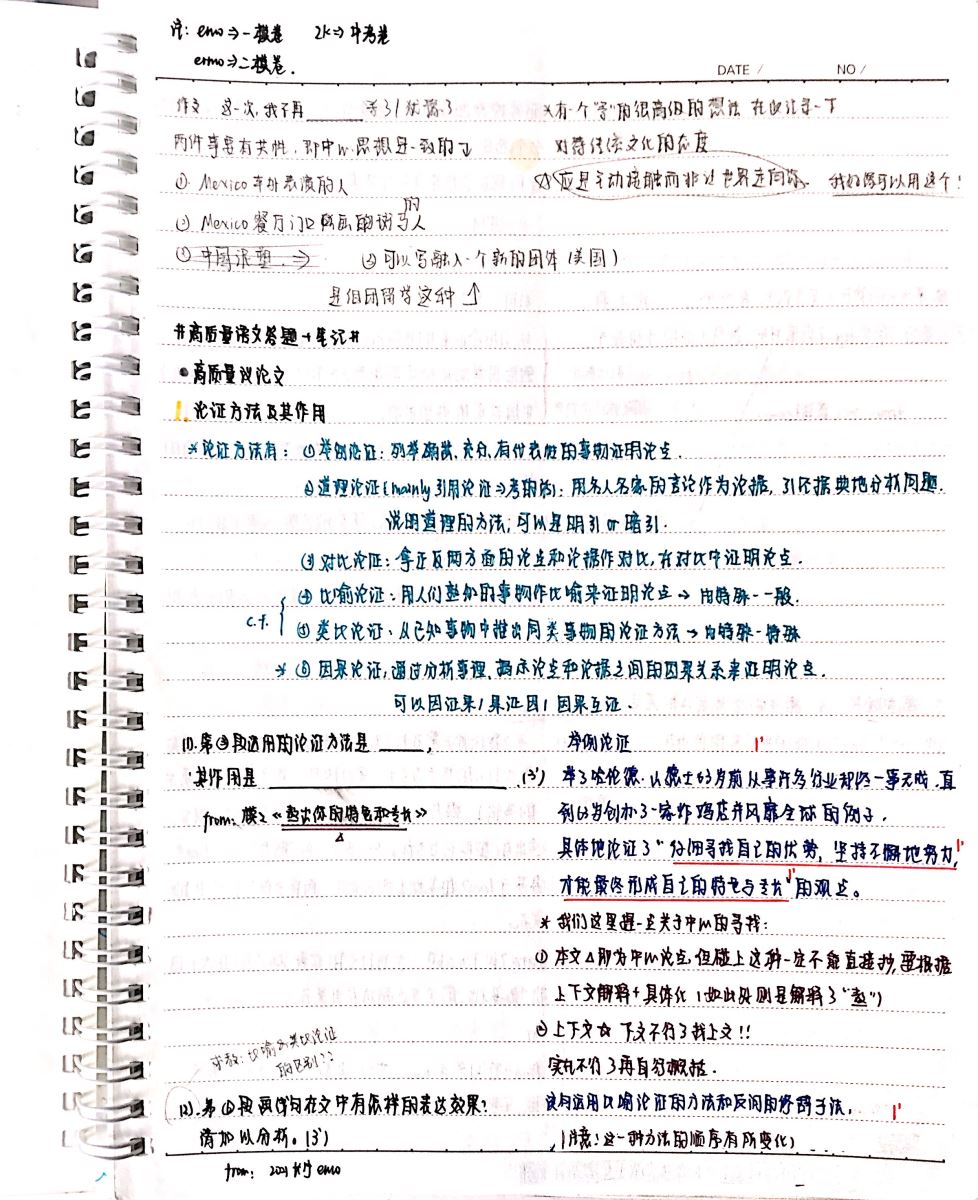 注: emo⇒一模卷 2k⇒中考卷
ermo⇒二模卷.
DATE / NO /
作文 这一次,我不再______
*有一个"写"的很高级的想法 在此记录一下
两件事要有共性,即中心思想是一致的↓
对待传统文化的态度
① Mexico 车外表演的人
应是主动接触而非让世界走向你. 我们还可以用这个!
② Mexico 餐厅门口 的人
① 中国泥塑. ⇒ ② 可以写融入一个新的团体(美国)
是组团留学这种↑
#高质量语文答题+笔记#
●高质量议论文
1.论证方法及其作用
*论证方法有: ①举例论证: 列举确凿、充分,有代表性的事物证明论点.
②道理论证(mainly引用论证⇒考的话): 用名人名家的言论作为论据,引经据典地分析问题.
说明道理的方法;可以是明引or暗引.
③对比论证: 拿正反两方面的论点和论据作对比,在对比中证明论点.
c.f. { ④比喻论证: 用人们熟知的事物作比喻来证明论点→由特殊-一般.
⑤类比论证: 从已知事物中推出同类事物的论证方法→由特殊-特殊
*⑥因果论证;通过分析事理,揭示论点和论据之间的因果关系来证明论点.
可以因证果/果证因/因果互证.
(1).第③段运用的论证方法是____,
举例论证 1'
其作用是______________________(3')
举了哈伦德·山德士63岁前从事许多行业却终一事无成,直
from: 模2《熬出你的特色和专长》
到65岁创办了一家炸鸡店并风靡全球的例子.
具体地论证了"仔细寻找自己的优势,坚持不懈地努力, 1'
才能最终形成自己的特色与专长"的观点。 1'
*我们这里提一点关于中心的寻找:
①本文△即为中心论点,但碰上这种一定不能直接抄,要根据
上下文解释+具体化(如此处则是解释了"熬")
②上下文☆ 下文不行了找上文!!
求教: 比喻与类比论证
的区别??
实在不行了再自行概括.
(2).第①段画线句在文中有怎样的表达效果?
该句运用比喻论证的方法和反问的修辞手法, 1'
请加以分析。(3')
(注意!这一种方法的顺序有所变化)
from: 2021长宁emo